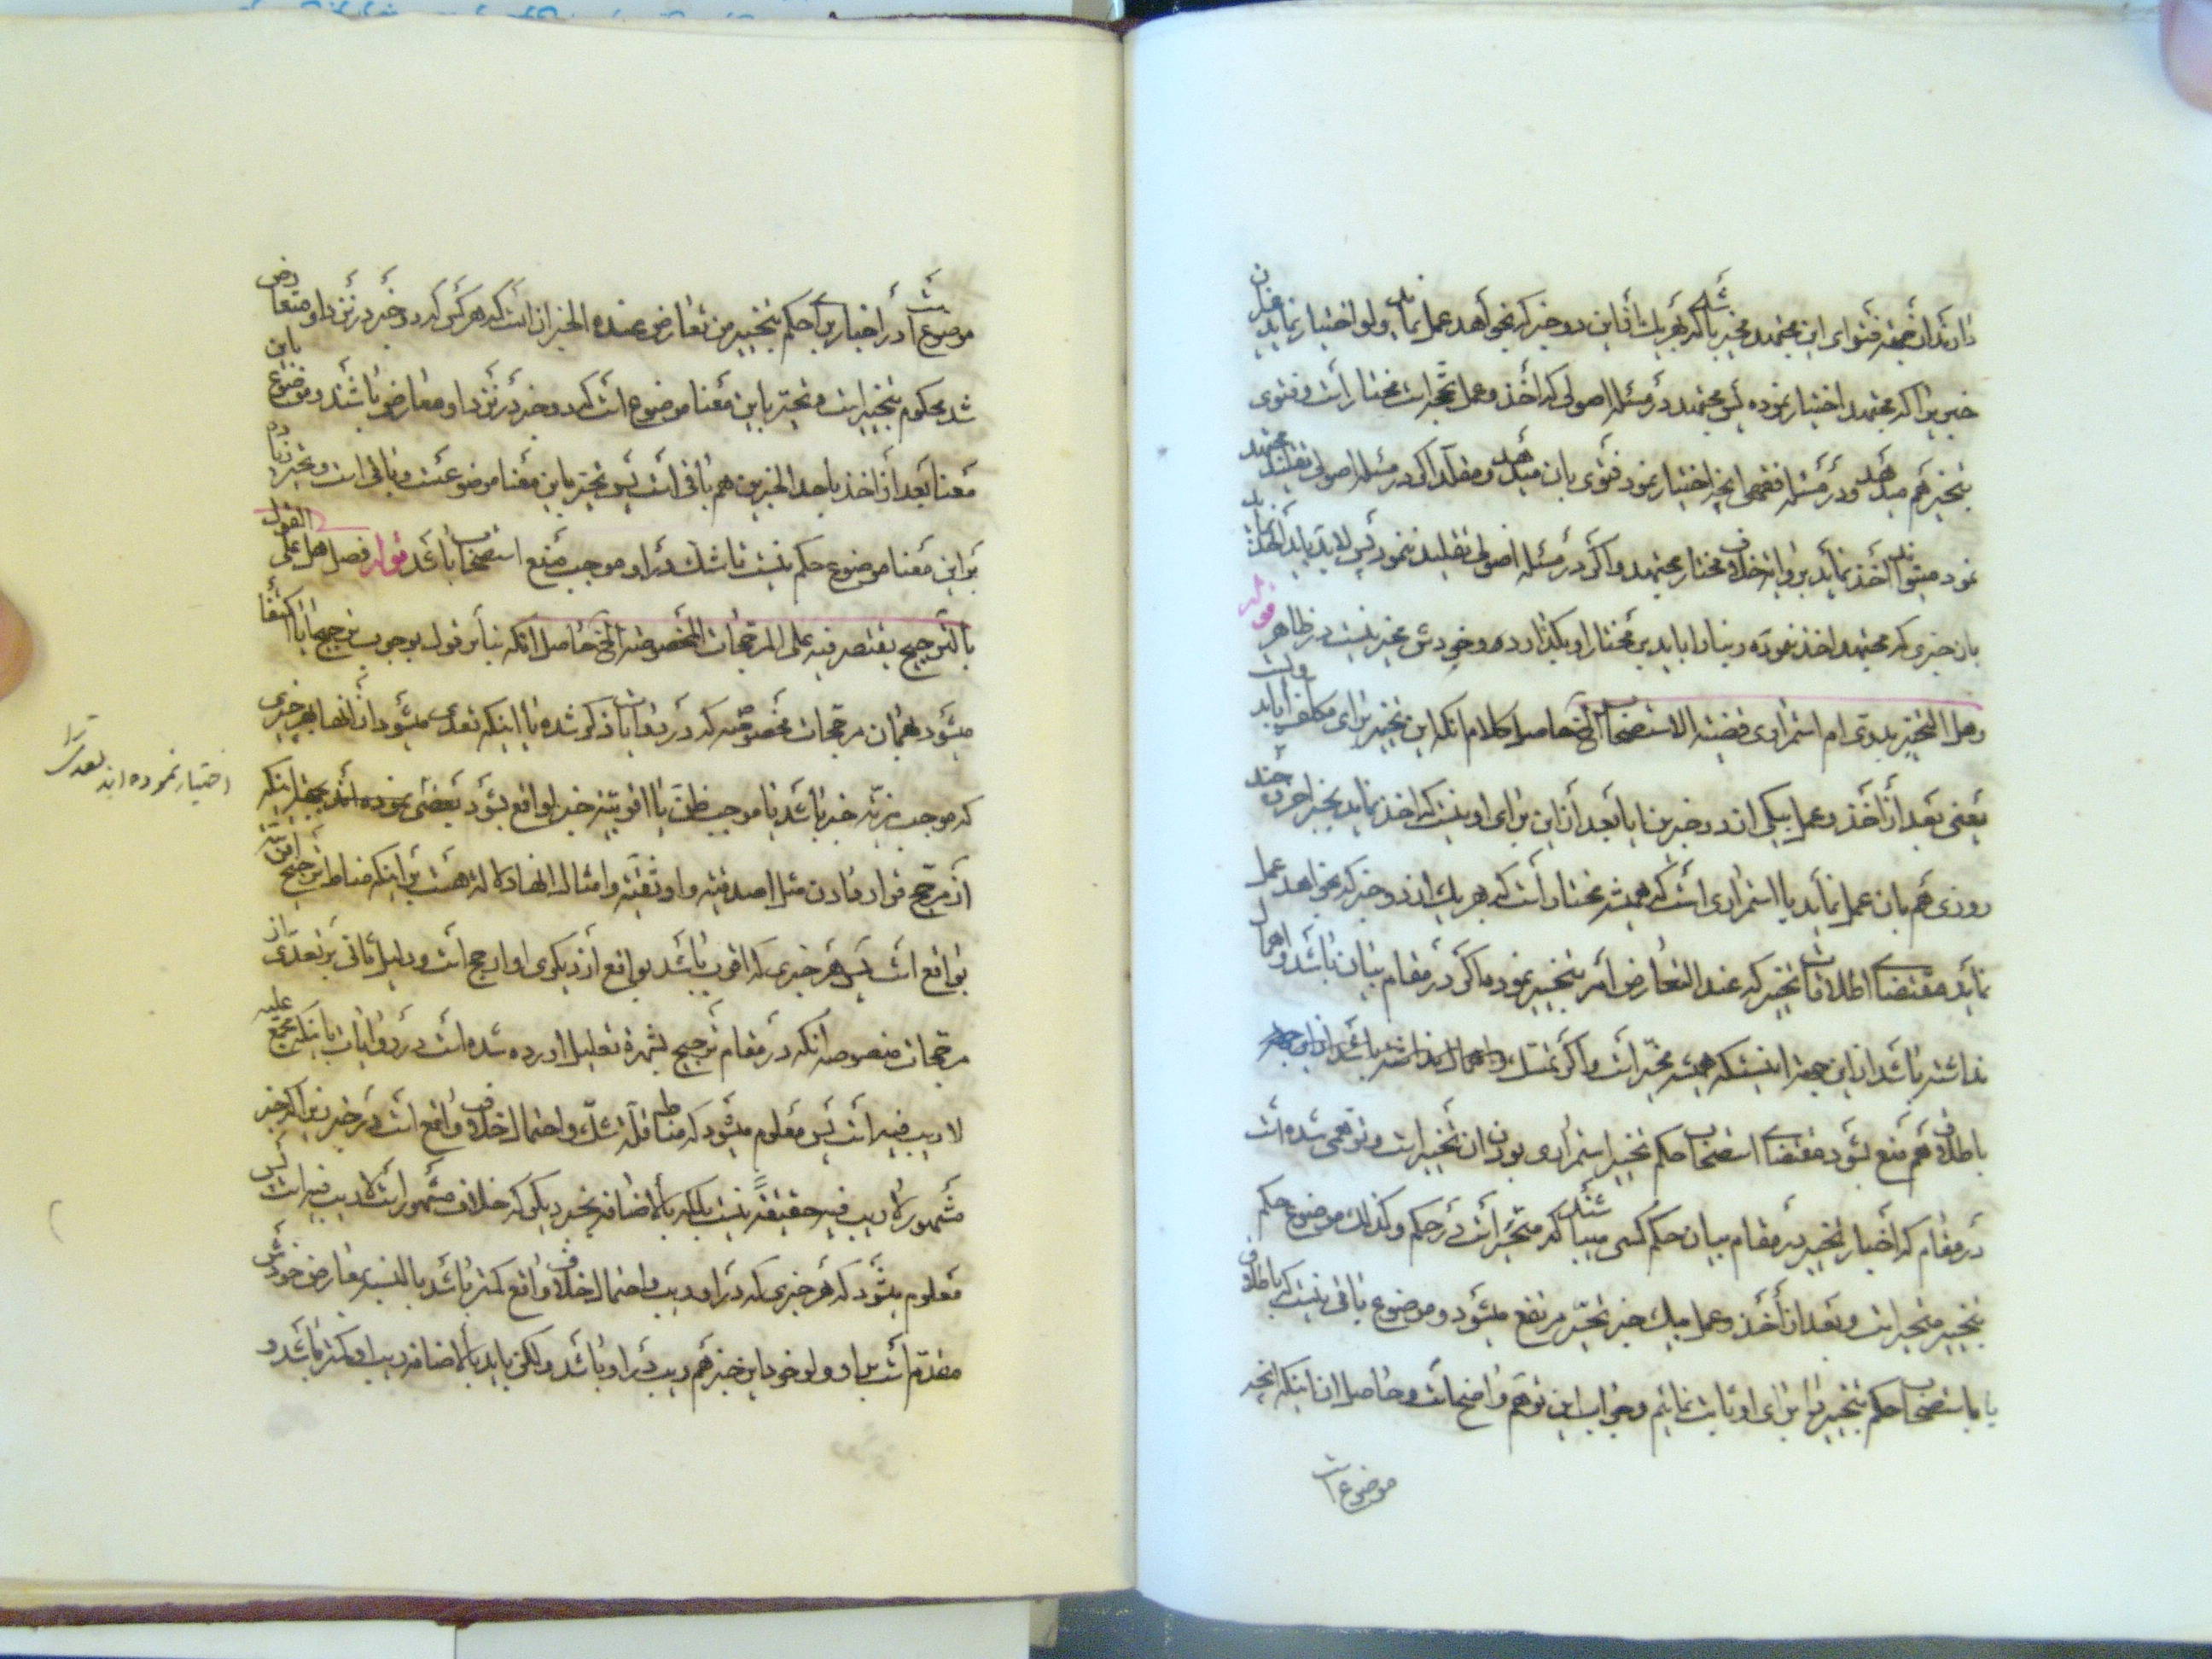 دارند از جهة فتوای این مجتهد مخیر باشد که بهر یك از این دو خبر که بخواهد عمل نماید ولو اختیار نماید غیر ان
خبریرا که مجتهد اختیار نموده پس مجتهد در مسئله اصولی که اخذ و عمل بخبر است مختار است و فتوی
بتخییر هم میدهد و در مسئله فقهی انچه اختیار نمود فتوی بان میدهد و مقلد اگر در مسئله اصولی تقلید مجتهد
نمود میتواند اخذ نماید بروایة خلاف مختار مجتهد و اگر در مسئله اصولی تقلید ننمود پس لابد باید اخذ نماید
بان خبری که مجتهد اخذ نموده و بنا را باید بر مختار او بگذارد و خودش مخیر نیست در ظاهر قوله
وهل التخییر بدوی ام استمراری قضیة الاستصحاب الخ حاصل کلام انکه این تخییر برای مکلف ایا بدویست
یعنی بعد از اخذ و عمل بیکی از دو خبر بنا بعد از این برای او نیست که اخذ نماید بخبر اخر و هر چند
روزی هم بان عمل نماید یا استمراری است که همیشه مختار است که بهر یك از دو خبر که بخواهد عمل
نماید مقتضای اطلاقات تخییر که عند التعارض امر بتخییر نمود ما که در مقام بیان باشد و اهمال
نداشته باشد از این جهة اینستکه همیشه مخیر است و اگر تمسك
باطلاق هم منع بشود مقتضای استصحاب حکم تخییر استمراری بودن ان تخییر است و توهمی شده است
در مقام که اخبار تخییر در مقام بیان حکم کسی میباشند که متحیر است در حکم و کذلك موضوع حکم
بتخییر متحیر است و بعد از اخذ و عمل بیك خبر تحیر مرتفع میشود و موضوع باقی نیست که باطلاق
یا باستصحاب حکم بتخییر را برای او ثابت نمائیم و جواب این توهم واضحست و حاصل ان اینکه انچه
موضوع است
موضوع است در اخبار برای حکم بتخییر من تعارض عنده الخبران است که هر کس که دو خبر در نزد او متعارض
شد محکوم بتخییر است و تحیر باین معنا موضوع است که دو خبر در نزد او معارض باشند و موضوع باین
معنا بعد از اخذ باحد الخبرین هم باقی است پس تحیر باین معنا موضوعست و باقی است و تحیر زیاده
بر این معنا موضوع حکم نیست تا شك در او موجب منع استصحاب باشد قوله فصل هل علی القول
بالترجیح یقتصر فیه علی المرجحات المخصوصه الخ حاصل انکه بنا بر قول بوجوب ترجیح ایا اکتفا
میشود بهمان مرجحات مخصوصه که در روایات ذکر شده یا اینکه تعدی میشود از انها بهر چیزی
که موجب مزیة خبر باشد یا موجب ظن یا اقربیة خبر بواقع بشود بعضی تعدی را اختیار نموده اند بجهة اینکه
از مرجح قرار دادن مثل اصدقیة و اوثقیة و امثال انها دلالة هست بر اینکه مناط ترجیح اقربیة
بواقع است پس هر خبری که اقرب باشد بواقع از دیگری او ارجح است و دلیل ثانی بر تعدی از
مرجحات منصوصه انکه در مقام ترجیح بشهرة تعلیل اورده شده است در روایات باینکه مجمع علیه
لاریب فیه است پس معلوم میشود که مناط قلة شك و احتمال خلاف واقع است در خبر زیرا که خبر
مشهور لاریب فیه حقیقة نیست بلکه بالاضافه بخبر دیگر که خلاف مشهور است لاریب فیه است پس
معلوم بشود که هر خبری که در او ریب و احتمال خلاف واقع کمتر باشد بالنسبه بمعارض خودش
مقدم است بر او ولو خود این خبر هم ریب در او باشد ولکن باید بالاضافه ریب او کمتر باشد و